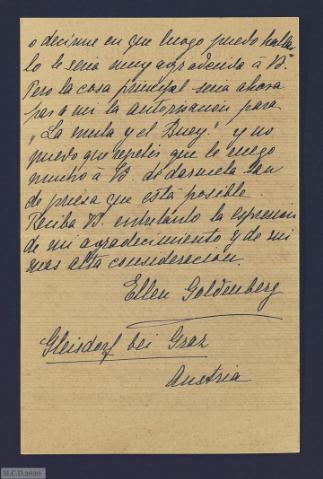 o decirme en que luego puedo halla
lo le seria muy agradecida à V.
Pero la cosa principal seria ahora
para mi la autorisación para
„La mula y el Buey." y no
puedo que repetir que le ruego
mucho à V. de darmela tan
de priesa que está posible.
Reciba V. entretanto la espresion
de mi agradecimiento y de mi
mas alta consideracion.
Ellen Goldenberg
Gleisdorf bei Graz
Austria
M.C.D.2020